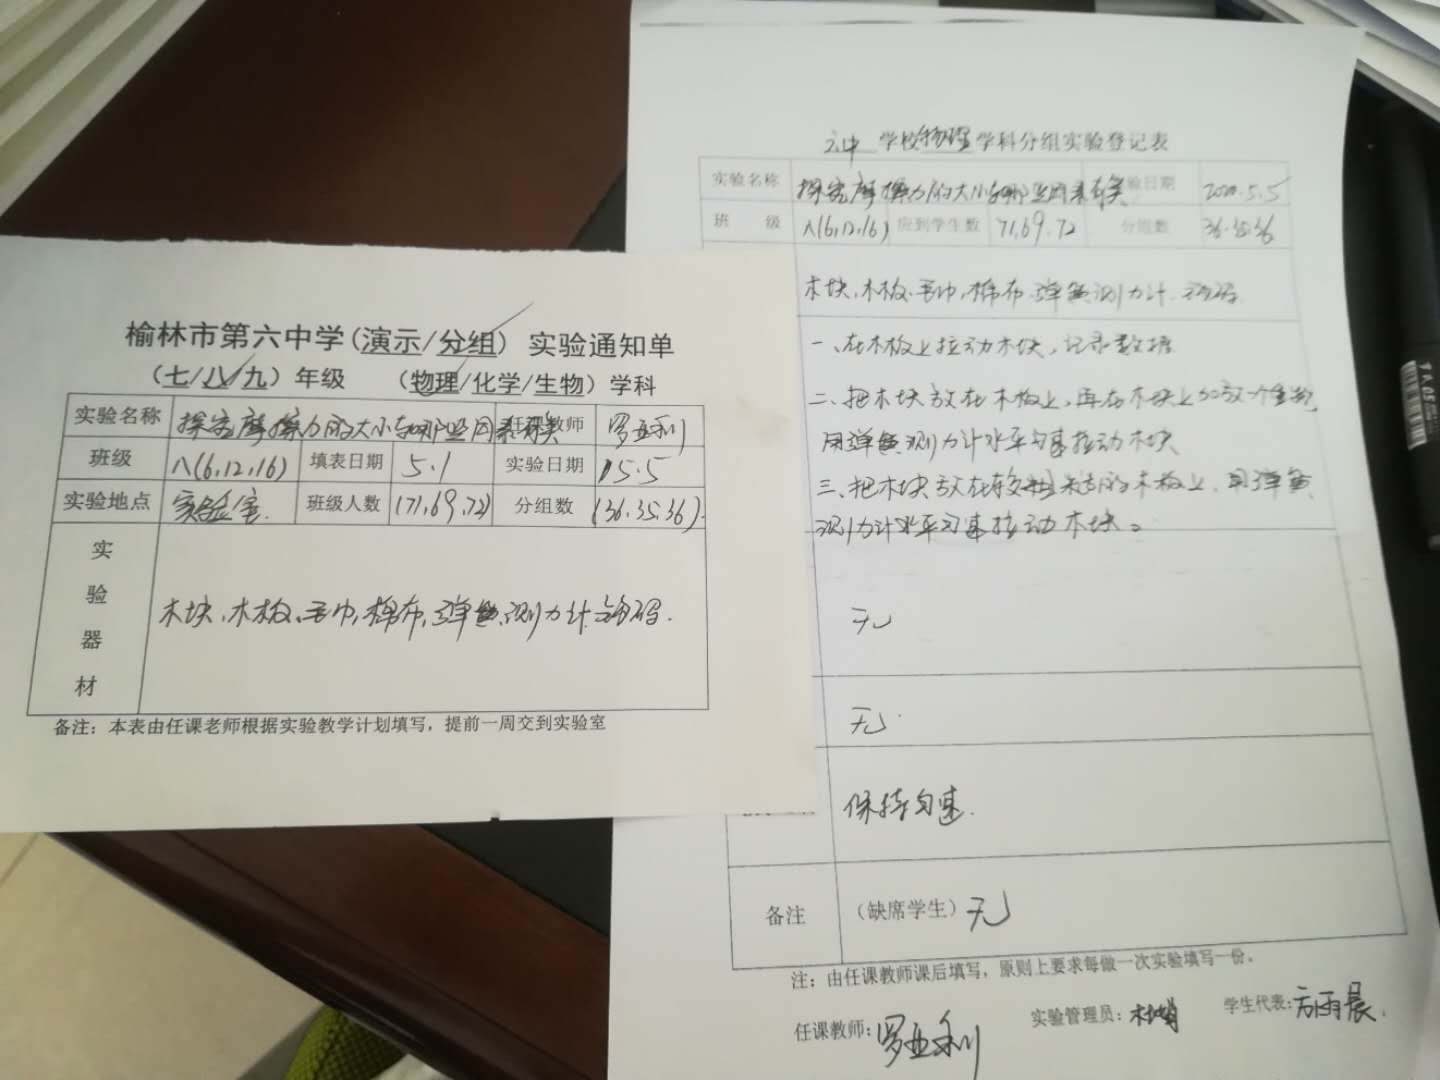 榆林市第六中学(演示/分组) 实验通知单
(七/八/九)年级 (物理/化学/生物)学科
实验名称 探究摩擦力的大小与哪些因素有关 任课教师 罗亚利
班级 八(6,12,16) 填表日期 5.1 实验日期 5.5
实验地点 实验室 班级人数 (71,69,72) 分组数 (36,35,36).
实验器材 木块,木板,毛巾,棉布,弹簧测力计.砝码.
备注：本表由任课老师根据实验教学计划填写，提前一周交到实验室
六中 学校物理学科分组实验登记表
实验名称 探究摩擦力的大小与哪些因素有关 验日期 2020.5.5
班 级 八(6,12,16) 应到学生数 71,69,72 分组数 36.35.36
木块,木板.毛巾,棉布.弹簧测力计.砝码.
一、在木板上拉动木块,记录数据
二、把木块放在木板上,再在木块上加放一个重物,
用弹簧测力计水平匀速拉动木块
三、把木块放在较粗糙的木板上,用弹簧
测力计水平匀速拉动木块。
无
无.
保持匀速.
备注 (缺席学生)无
注：由任课教师课后填写，原则上要求每做一次实验填写一份。
任课教师:罗亚利 实验管理员: 学生代表:雨晨.